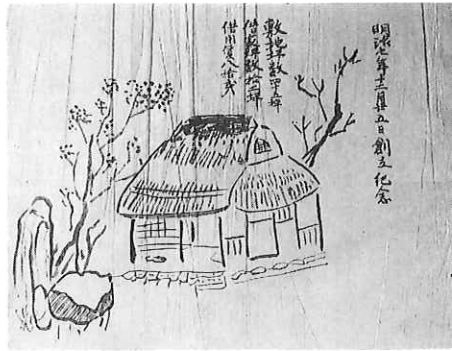 明治七年十二月廿五日創立紀念
敷地坪数四十五坪
借家坪数拾二坪
借用賃八拾